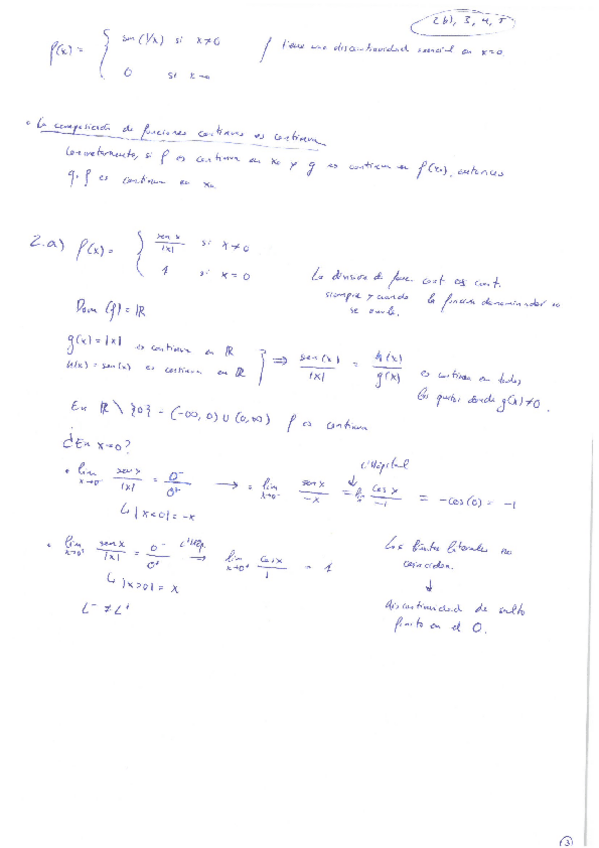 2b), 3, 4, 5
f(x) = { sen(1/x) si x≠0 f tiene una discontinuidad esencial en x=0
0 si x=0
• La composición de funciones continuas es continua
Concretamente, si f es continua en x₀ y g es continua en f(x₀), entonces
g∘f es continua en x₀.
2.a) f(x) = { sen x/|x| si x≠0
1 si x=0
La división de func. cont. es cont.
siempre y cuando la función denominador no
se anule.
Dom(f) = ℝ
g(x) = |x| es continua en ℝ
h(x) = sen(x) es continua en ℝ } ⇒ sen(x)/|x| = h(x)/g(x) es continua en todos
los puntos donde g(x)≠0.
En ℝ\{0} = (-∞,0)∪(0,∞) f es continua
¿En x=0?
• lim x→0⁻ sen x/|x| = 0⁻/0⁺ → = lim x→0⁻ sen x/-x = lim cos x/-1 = -cos(0) = -1
L'Hôpital
↳ |x<0| = -x
• lim x→0⁺ sen x/|x| = 0⁻/0⁺ L'Hôp. → lim x→0⁺ cos x/1 = 1
↳ |x>0| = x
L⁻ ≠ L⁺
Los límites laterales no
coinciden.
↓
discontinuidad de salto
finito en el 0.
3